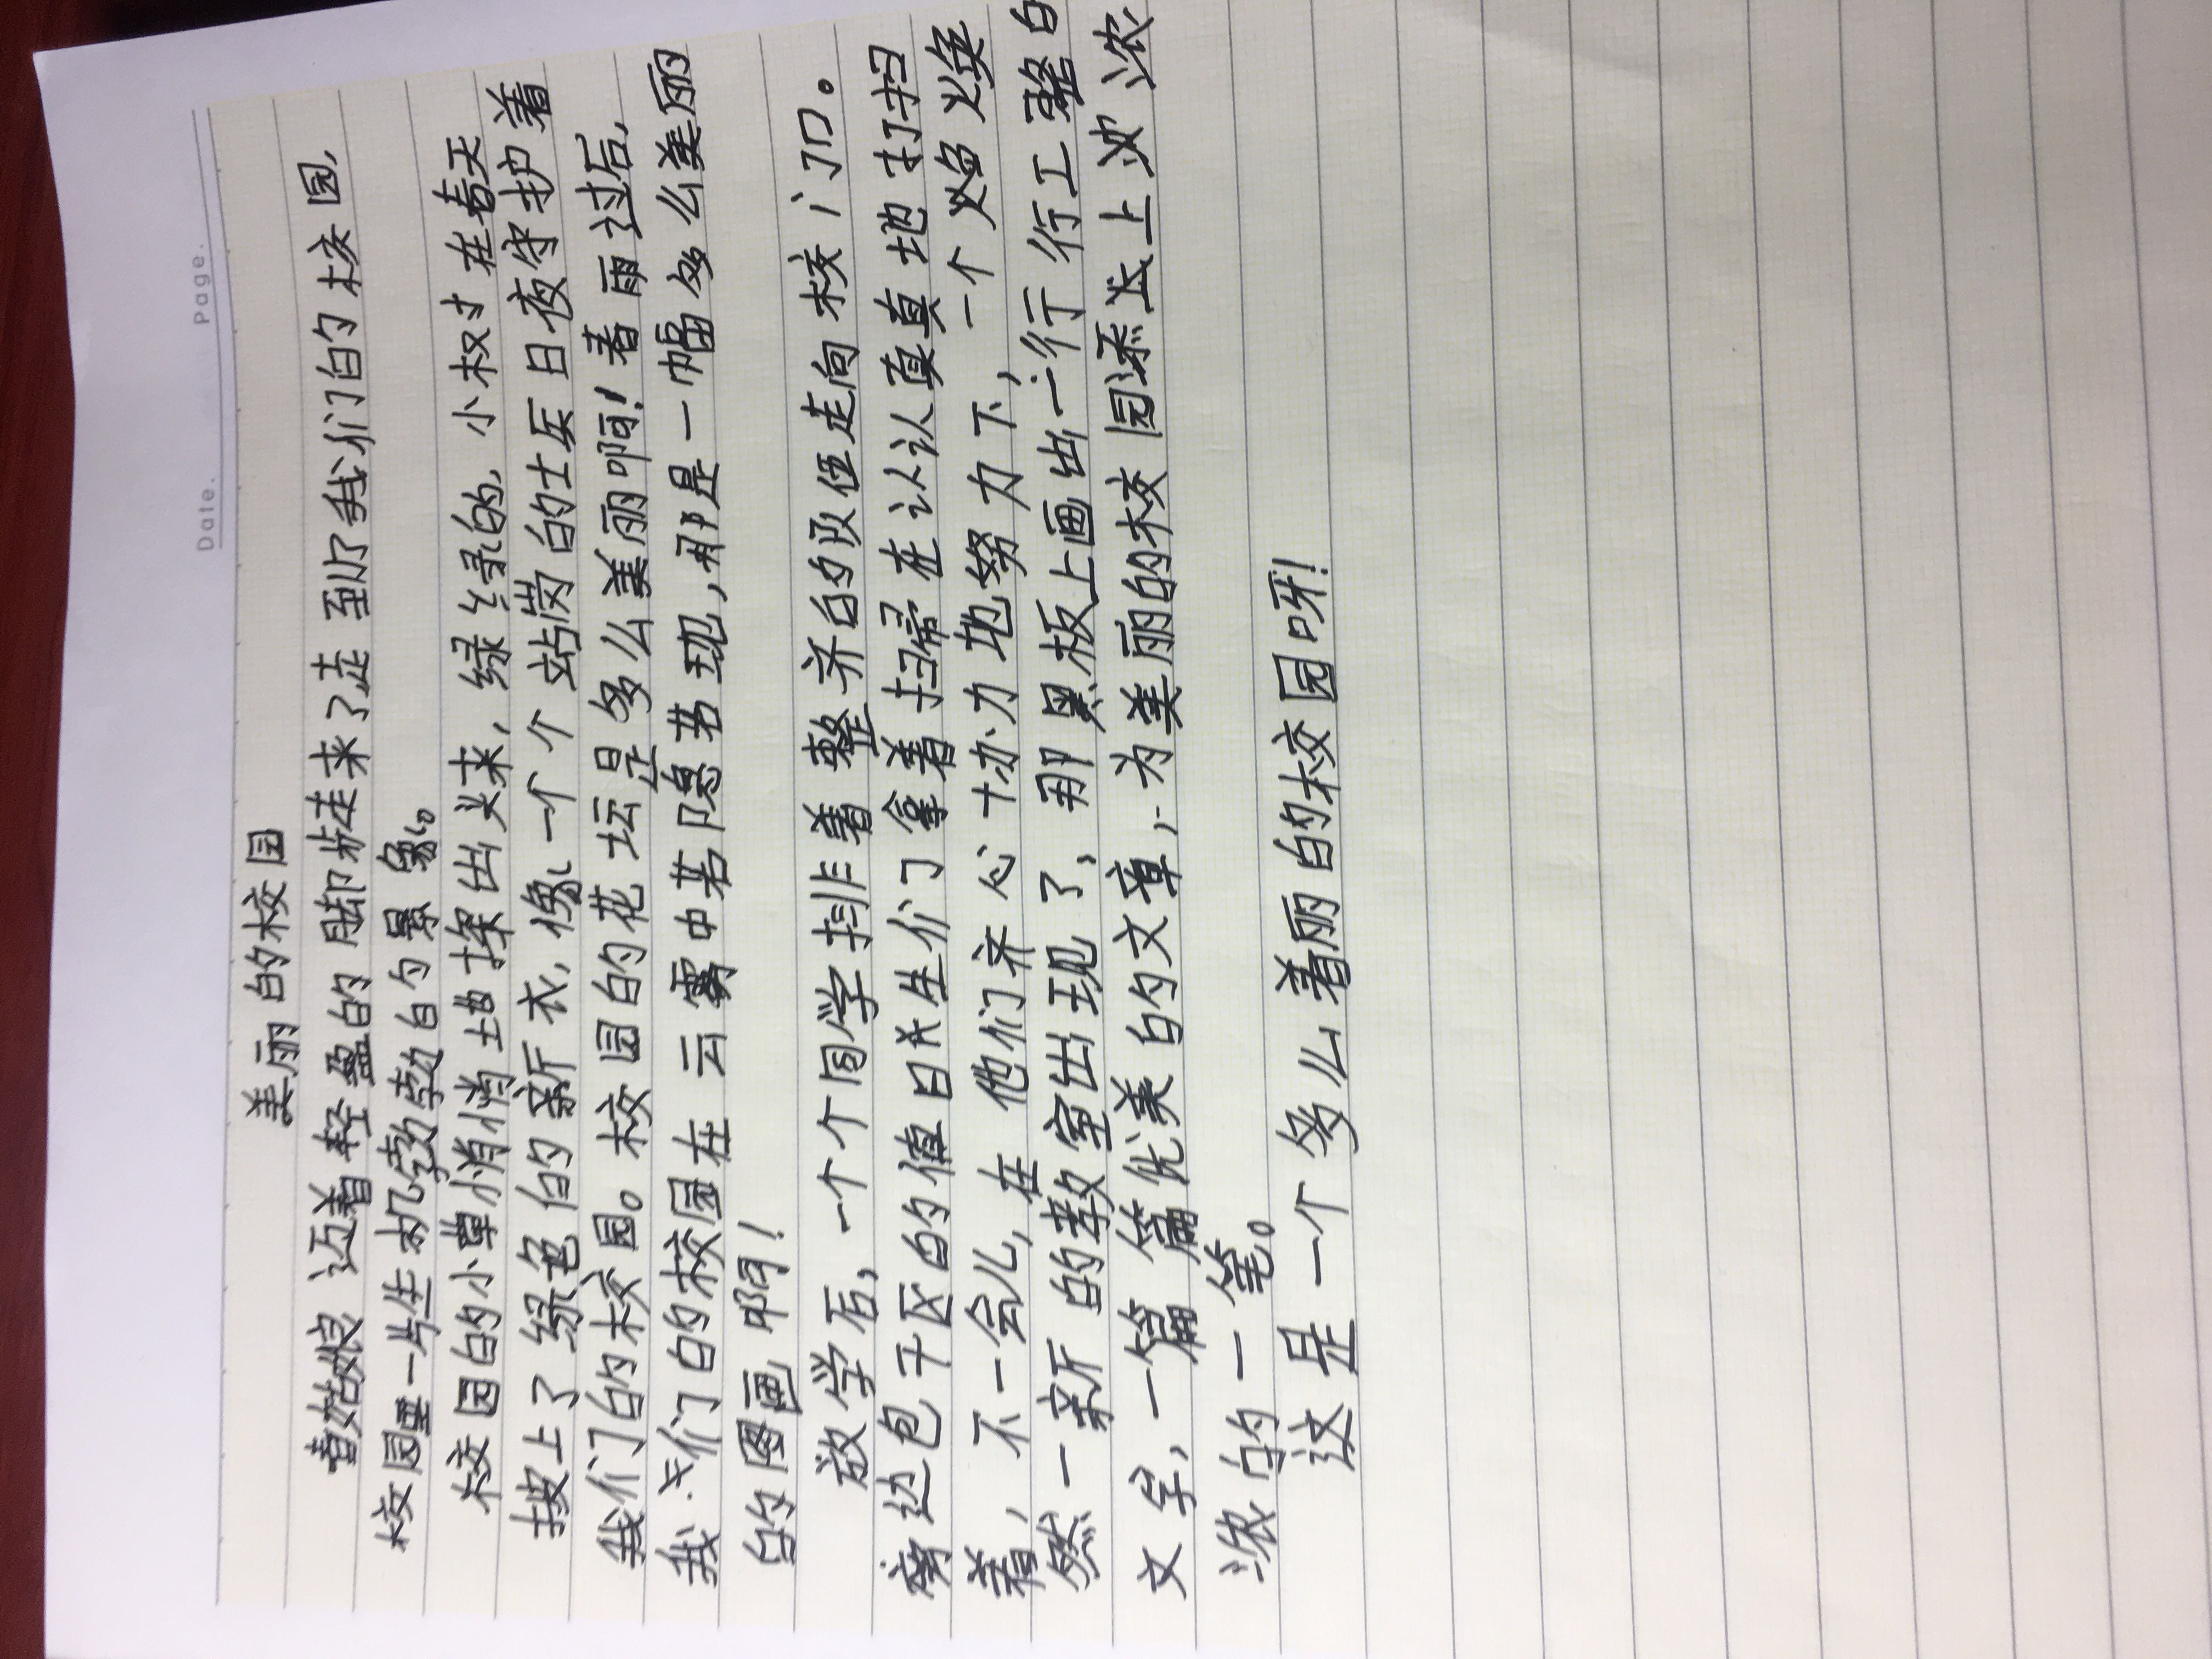 Date.      Page.
美丽的校园
春姑娘迈着轻盈的脚步走来了走到了我们的校园,
校园里一片生机勃勃的景象。
校园的小草悄悄地探出头来,绿绿的,小树在春天
披上了绿色的新衣,像一个个站岗的士兵日夜守护着
我们的校园。校园的花坛是多么美丽啊!春雨过后,
我们的校园在云雾中若隐若现,那是一幅多么美丽
的图画啊!
放学后,一个个同学排着整齐的队伍走向校门口。
旁边包干区的值日生们拿着扫帚在认认真真地打扫
着,不一会儿,在他们齐心协力地努力下,一个焕
然一新的教室出现了,那黑板上画出一行行工整的
文字,一篇篇优美的文章,为美丽的校园添上浓
浓的一笔。
这是一个多么美丽的校园呀!